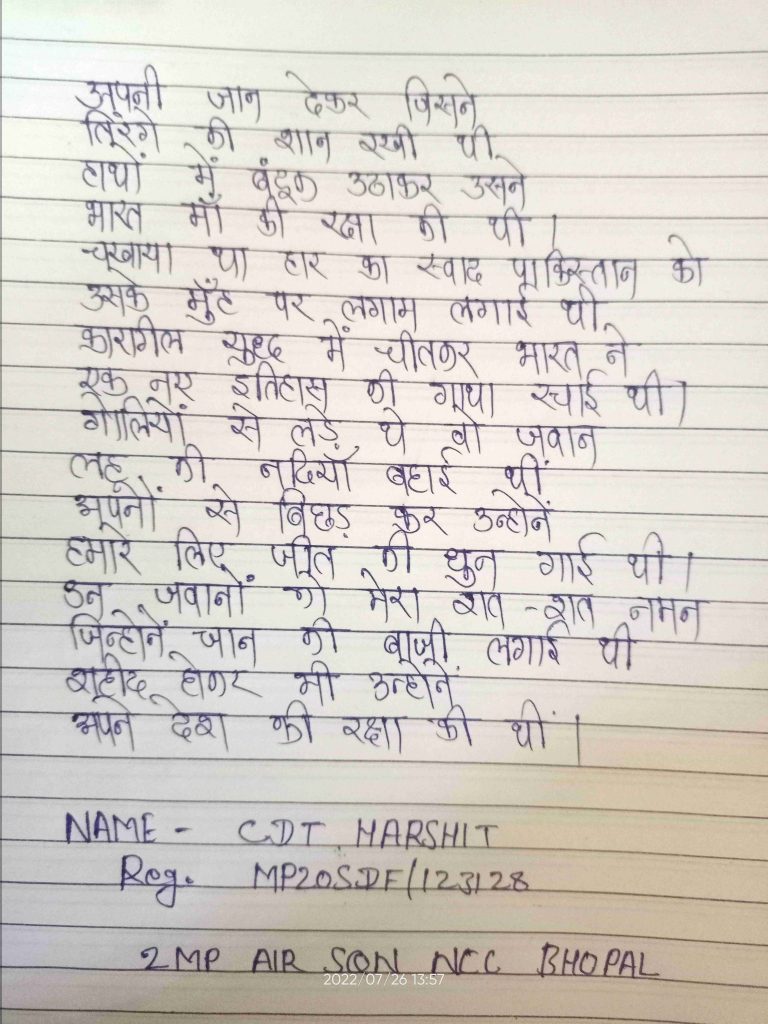 अपनी जान देकर जिसने
तिरंगे की शान रखी थी
हाथों में बंदूक उठाकर उसने
भारत माँ की रक्षा की थी।
चखाया था हार का स्वाद पाकिस्तान को
उसके मुँह पर लगाम लगाई थी
कारगिल युध्द में जीतकर भारत ने
एक नए इतिहास की गाथा रचाई थी।
गोलियों से लड़े थे वो जवान
लहू की नदियाँ बहाई थीं
अपनों से बिछड़ कर उन्होनें
हमारे लिए जीत की धुन गाई थी।
उन जवानों को मेरा शत-शत नमन
जिन्होनें जान की बाजी लगाई थी
शहीद होकर भी उन्होनें
अपने देश की रक्षा की थी।
NAME - CDT. HARSHIT
Reg. MP20SDF/123128
2 MP AIR SQN NCC BHOPAL
2022/07/26 13:57